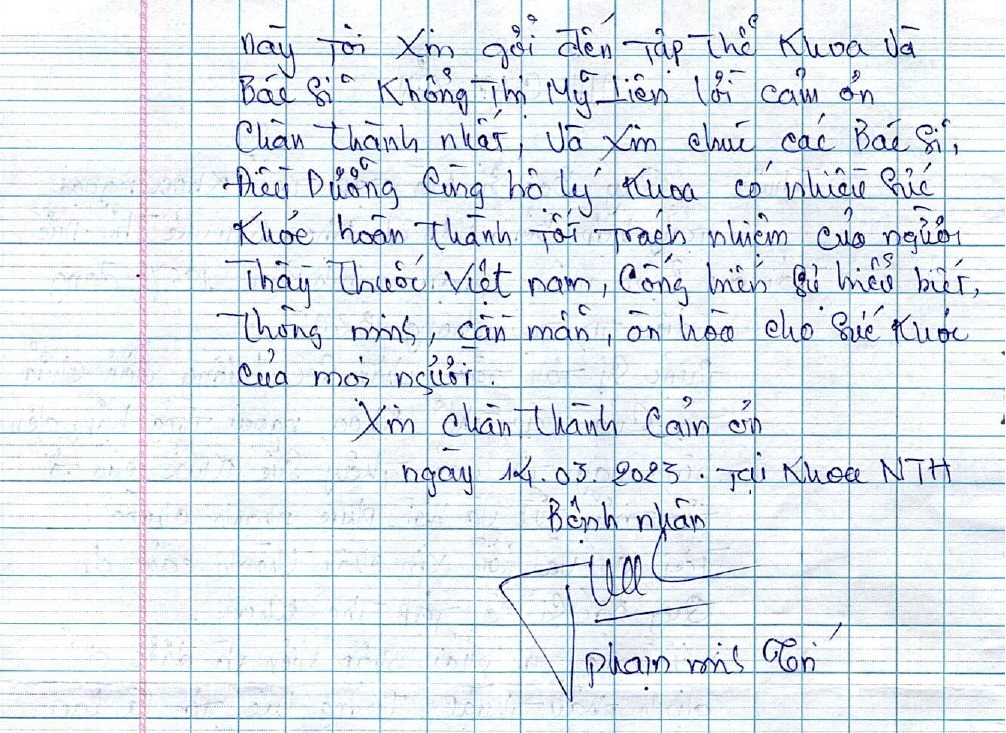 này tôi xin gởi đến tập thể Khoa và
Bác sĩ Khổng Thị Mỹ Liên lời cảm ơn
chân thành nhất, và xin chúc các Bác sĩ,
Điều Dưỡng cùng hộ lý Khoa có nhiều sức
khỏe hoàn thành tốt trách nhiệm của người
Thầy thuốc Việt nam, cống hiến sự hiểu biết,
thông minh, cần mẫn, ôn hòa cho sức khỏe
của mọi người.
Xin chân thành cảm ơn
ngày 14.03.2023. Tại Khoa NTH
Bệnh nhân
phạm minh Trí